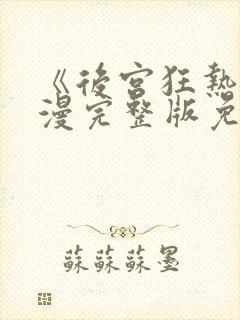 《後宮狂熱
漫完整版免
蘇蘇蘇墨